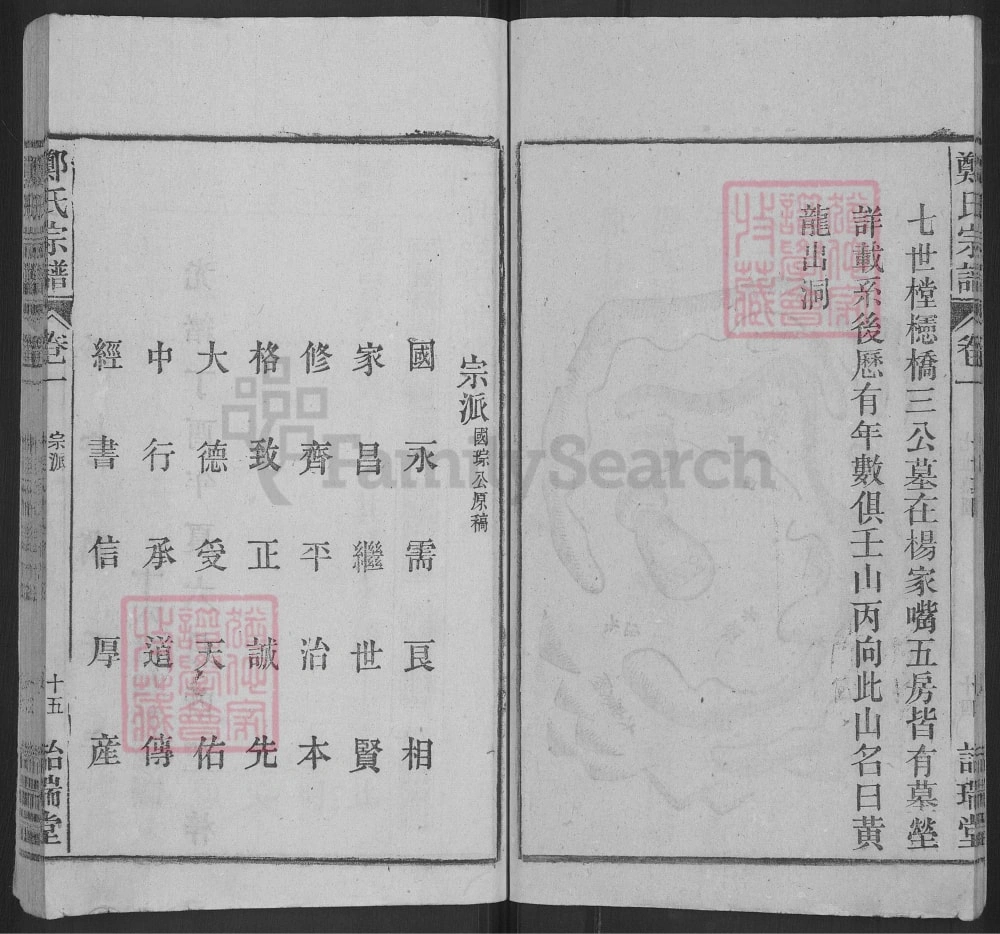 七世樘櫶橋三公墓在楊家嘴五房皆有墓塋
詳載系後歷有年數俱壬山丙向此山名曰黃
龍出洞
鄭氏宗譜
卷一
詒瑞堂
宗派國琮公原稿
國永需良相
家昌繼世賢
修齊平治本
格致正誠先
大德受天佑
中行承道傳
經書信厚產
鄭氏宗譜
卷一
宗派
十五
詒瑞堂
FamilySearch